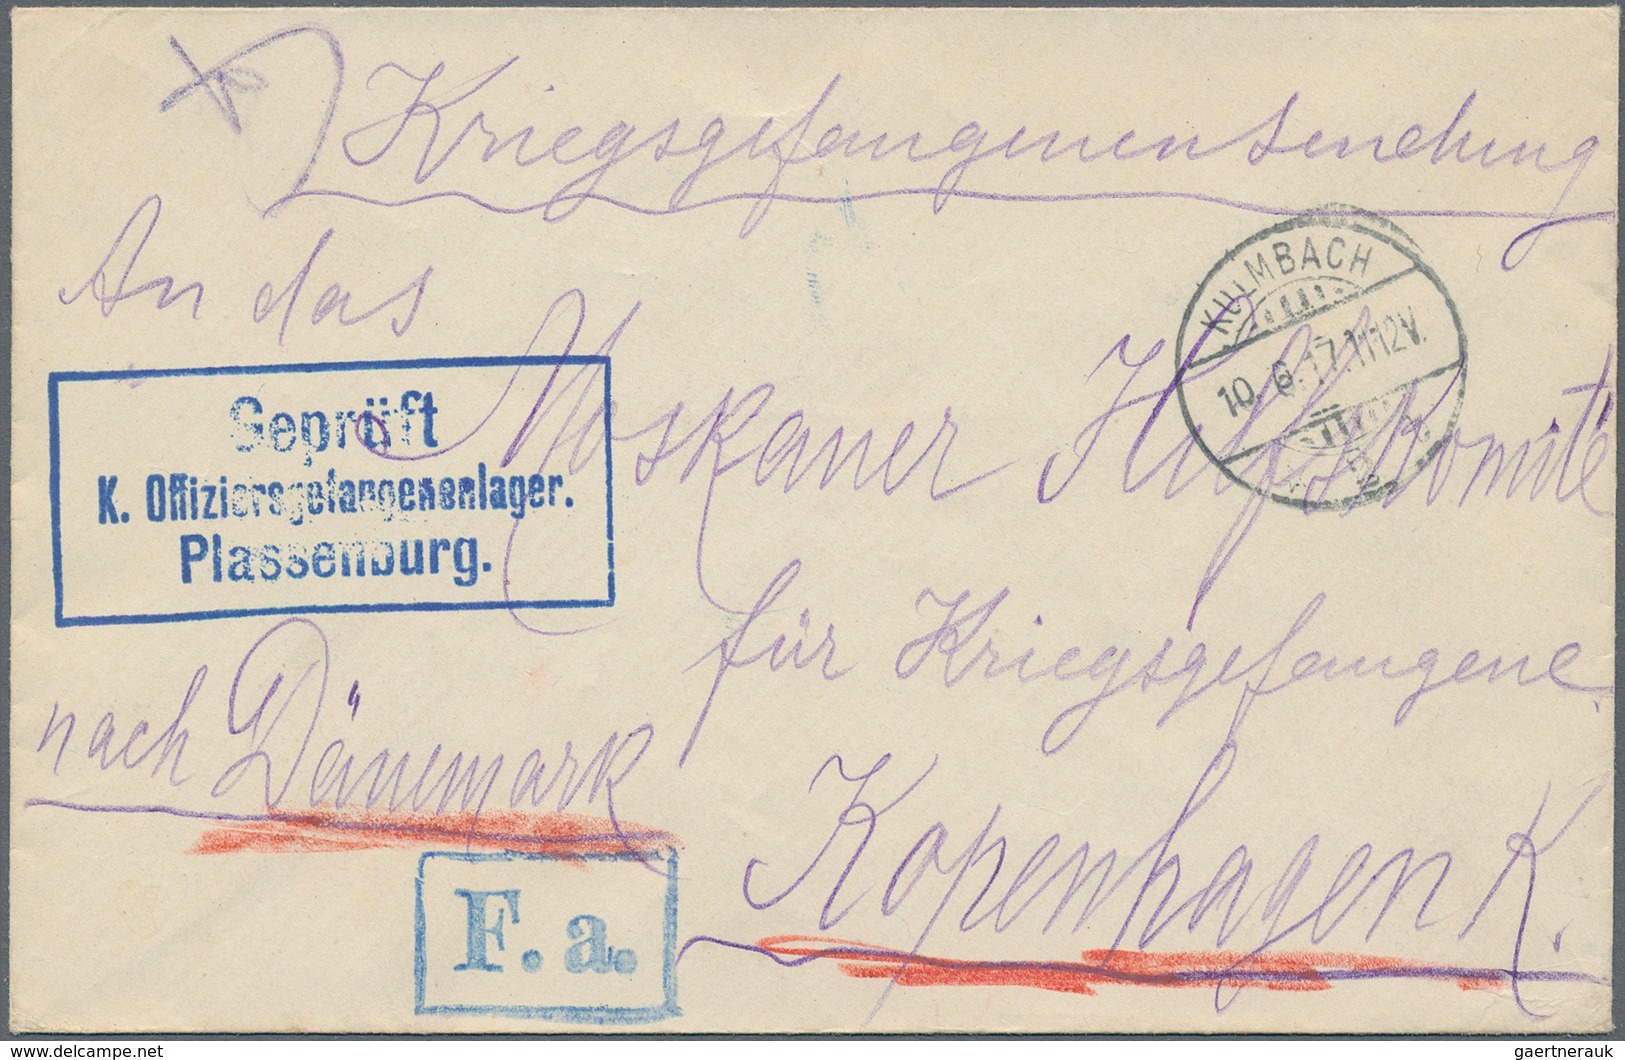 Kriegsgefangenensendung
An das
Moskauer Hilfskomité
für Kriegsgefangene
nach Dänemark
Kopenhagen K.
Geprüft
K. Offiziersgefangenenlager.
Plassenburg.
KULMBACH
10. 6. 17. 11-12V.
F. a.
© akpool.de
gaertnerauk